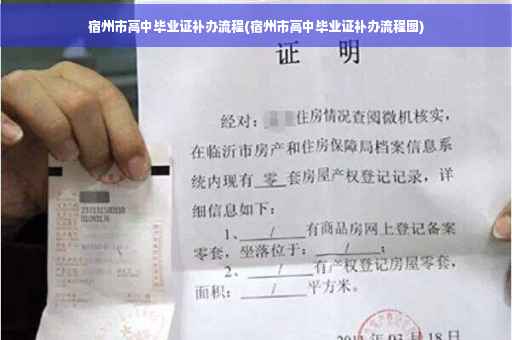 宿州市高中毕业证补办流程(宿州市高中毕业证补办流程图)
证 明
经对：住房情况查阅微机核实，
在临沂市房产和住房保障局档案信息系
统内现有 零 套房屋产权登记记录，详
细信息如下：
1、 / 有商品房网上登记备案
零套，坐落位于： / ；
2、 / 有产权登记房屋零套，
面积： / 平方米。
03月18日